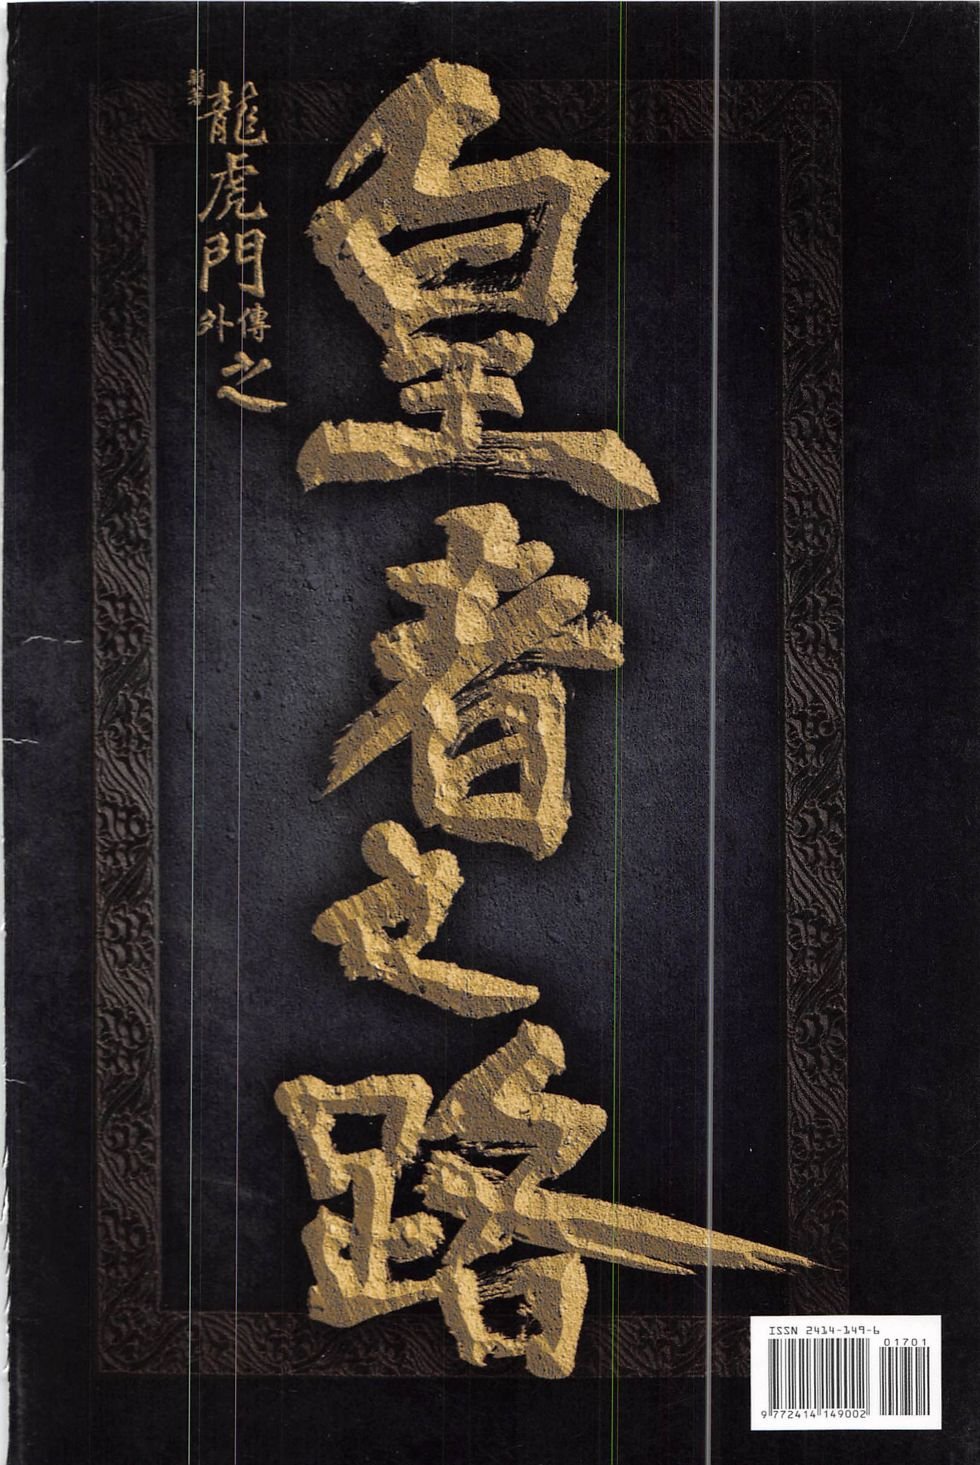 新著
龍虎門
外傳
之
皇者之路
ISSN 2414-149-6
01701
9 772414 149002